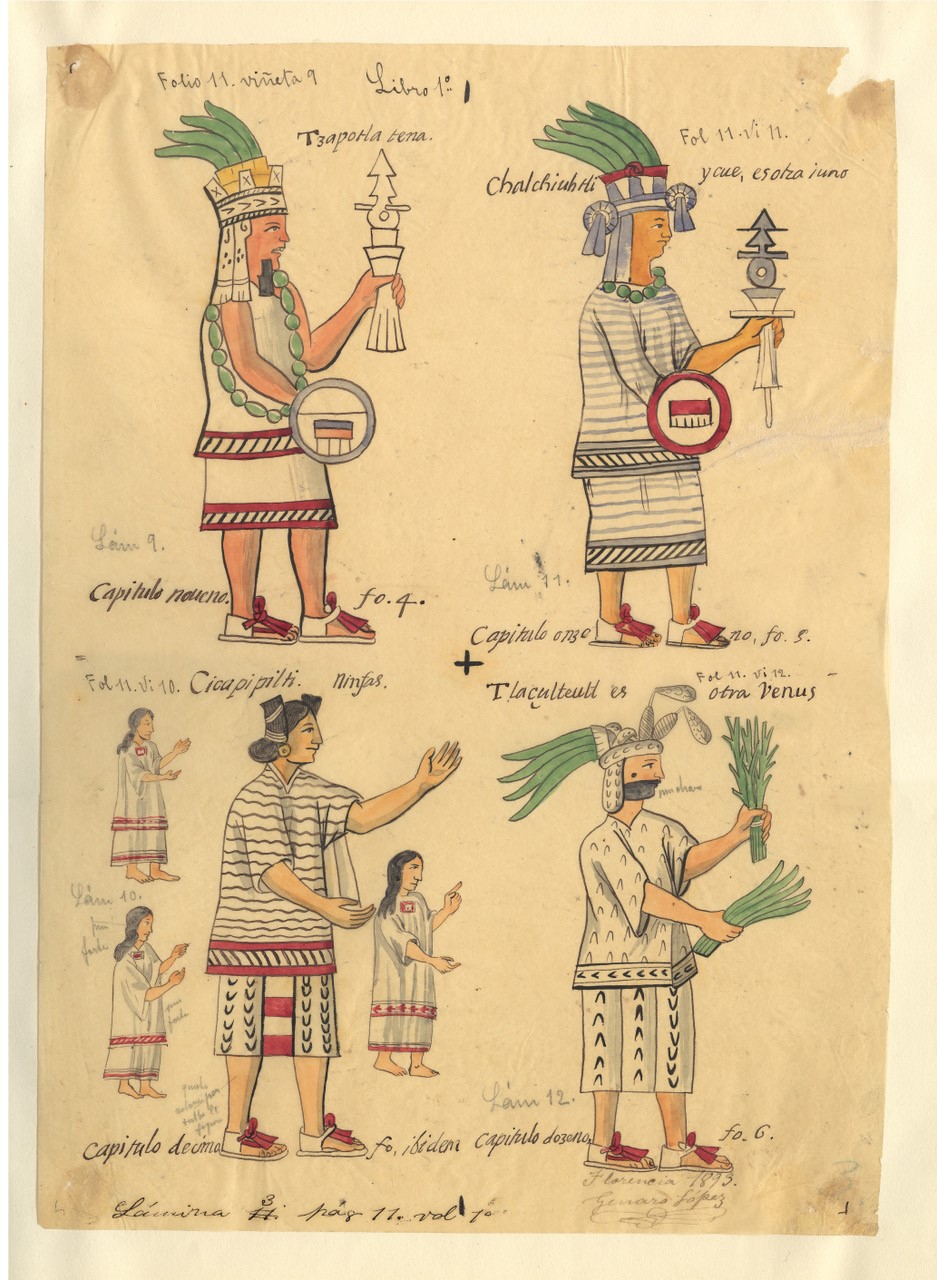 Folio 11. viñeta 9
Libro 1º
Tzapotla tena.
Fol 11. Vi 11.
Chalchiuhtli ycue, es otra iuno
Lám 9.
Capitulo noueno. fo. 4.
Lám 11.
Capitulo onzeno, fo. 5.
Fol 11. Vi 10.
Cicapipilti. Ninfas.
Fol 11. Vi 12.
Tlaçulteutl es otra Venus
Lám 10.
Lám 12.
Capitulo decimo fo, ibidem
capitulo dozeno, fo. 6.
Florencia 1893.
Genaro López
Lámina 3 pág 11. vol 1º